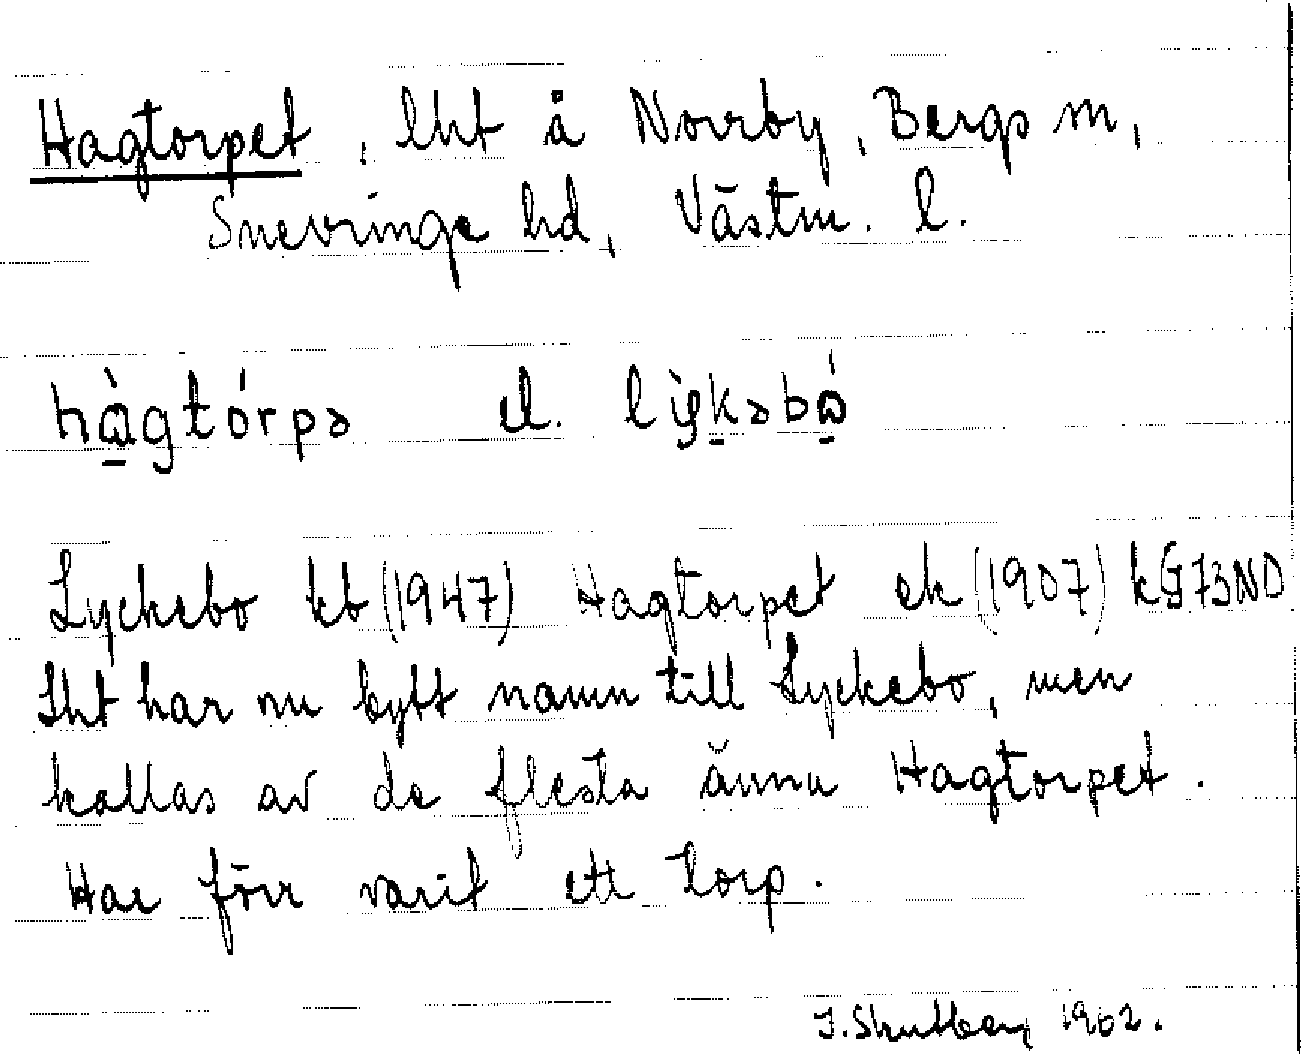 Hagtorpet, lht å Norrby, Bergs sn,
Snevringe hd, Västm. l.
hàgtórpə el. lỳkəbó
Lyckebo kb (1947) Hagtorpet ek (1907) kG73NO
Lht har nu bytt namn till Lyckebo, men
kallas av de flesta ännu Hagtorpet.
Har förr varit ett torp.
1962.